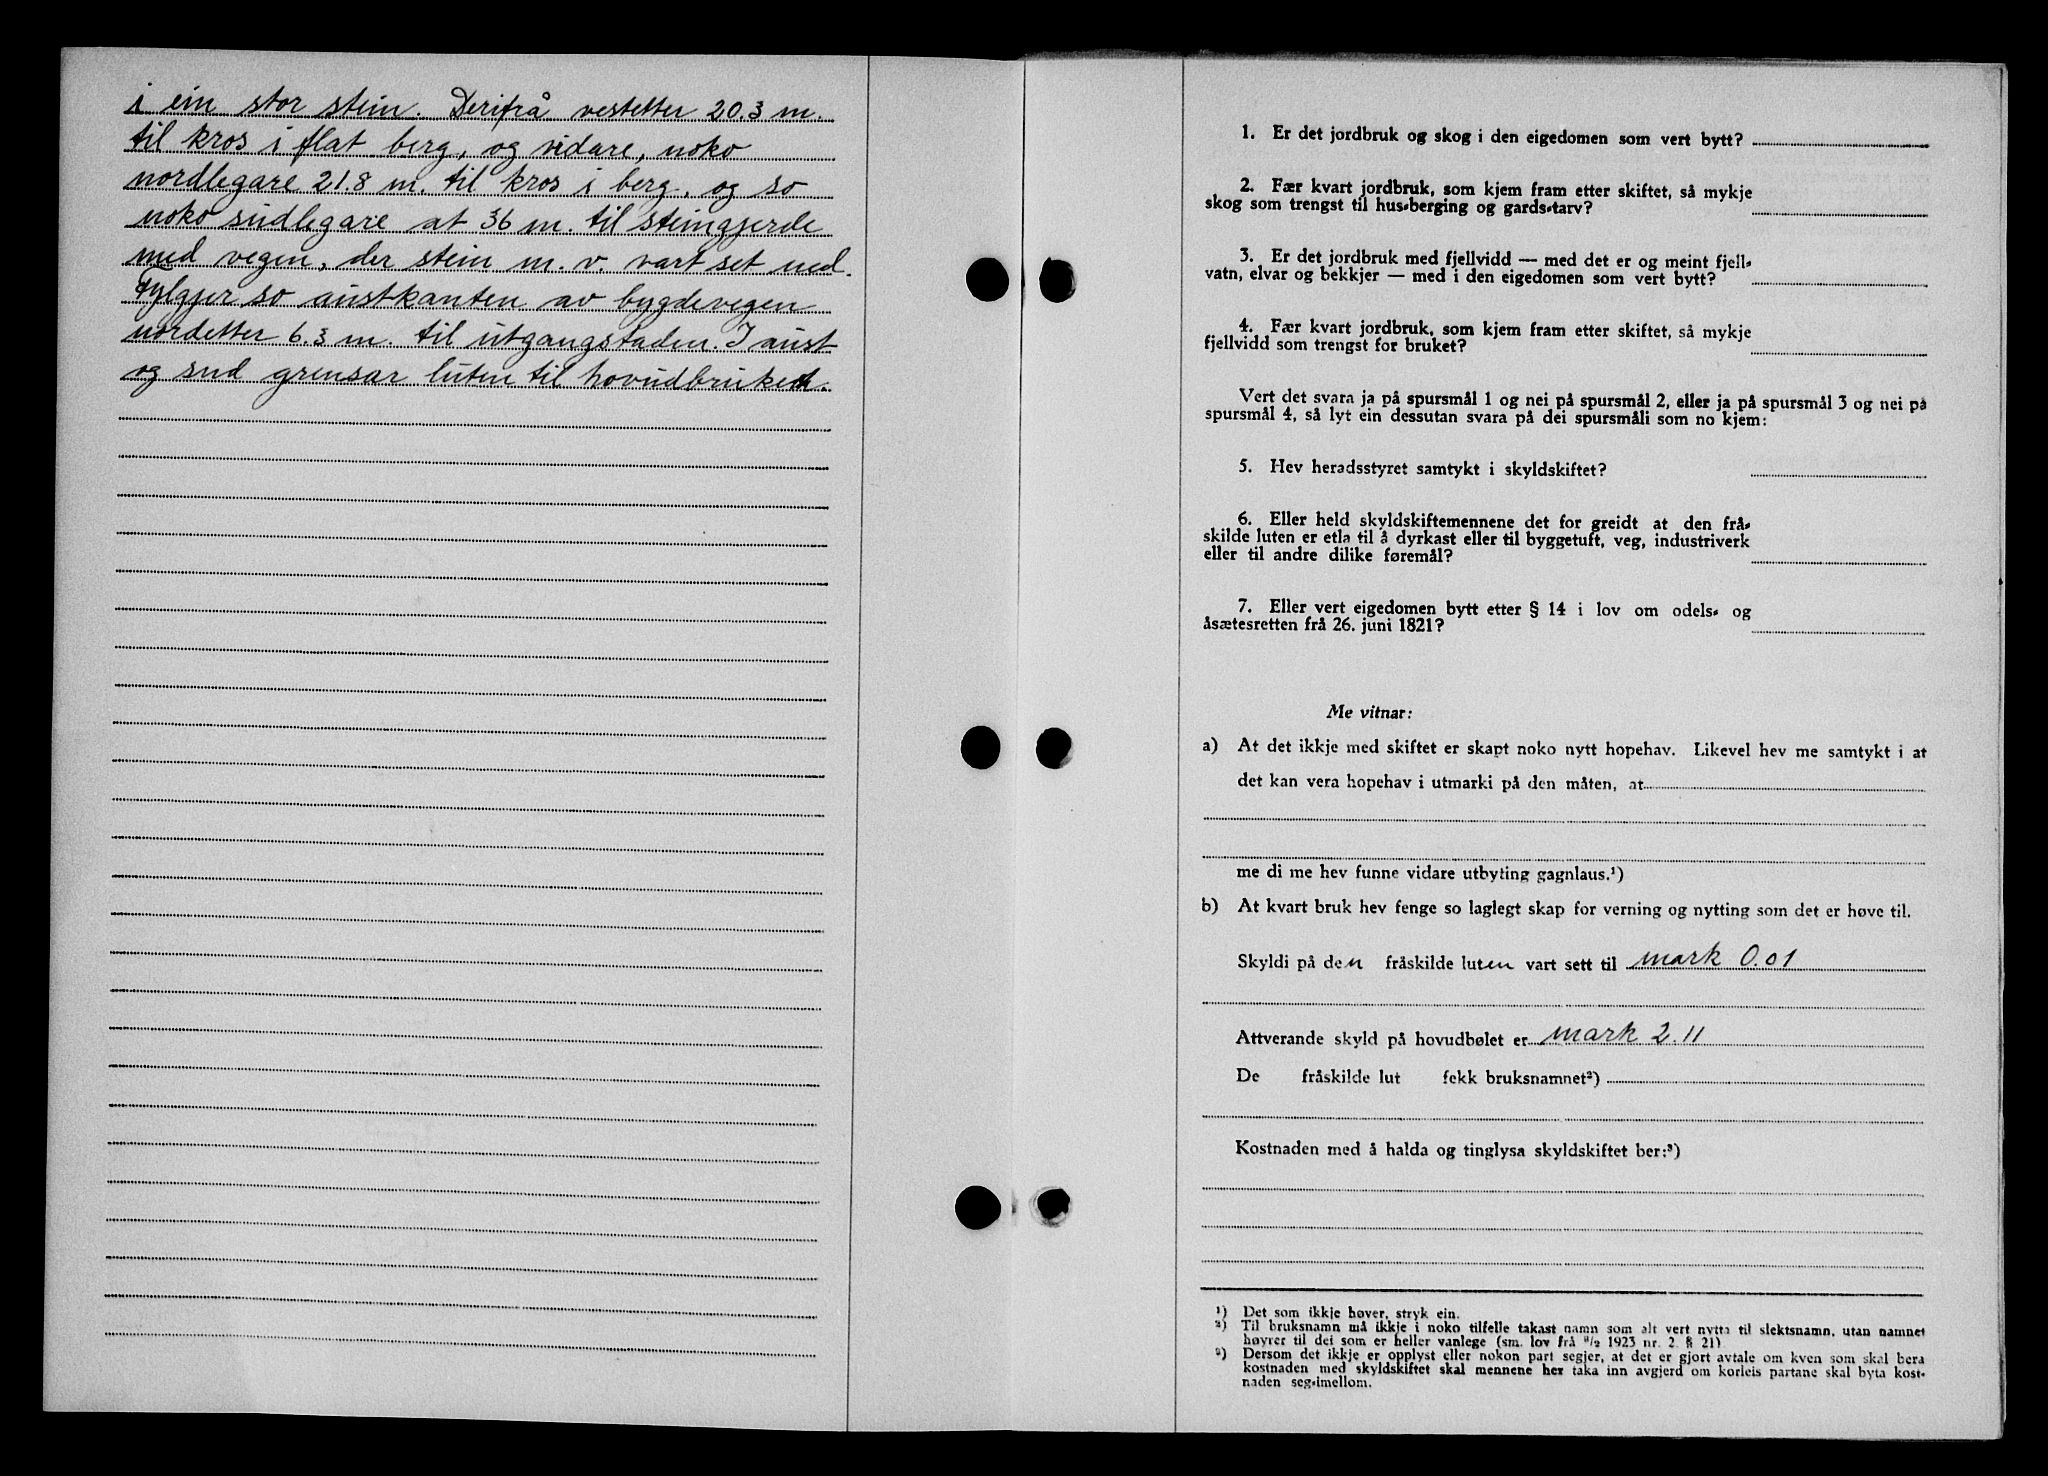 i ein stor stein. Derifrå vestetter 20.3 m.
til kros i flat berg, og vidare, noko
nordlegare 21.8 m. til kros i berg, og so
noko sudlegare at 36 m. til steingjerde
med vegen, der stein m. v. vart set ned.
Fylgjer so austkanten av bygdevegen
nordetter 6.3 m. til utgangstaden. I aust
og sud grensar luten til hovudbruket.
1. Er det jordbruk og skog i den eigedomen som vert bytt?
2. Fær kvart jordbruk, som kjem fram etter skiftet, så mykje
skog som trengst til hus-berging og gards-tarv?
3. Er det jordbruk med fjellvidd — med det er og meint fjell-
vatn, elvar og bekkjer — med i den eigedomen som vert bytt?
4. Fær kvart jordbruk, som kjem fram etter skiftet, så mykje
fjellvidd som trengst for bruket?
Vert det svara ja på spursmål 1 og nei på spursmål 2, eller ja på spursmål 3 og nei på
spursmål 4, så lyt ein dessutan svara på dei spursmåli som no kjem:
5. Hev heradsstyret samtykt i skyldskiftet?
6. Eller held skyldskiftemennene det for greidt at den frå-
skilde luten er etla til å dyrkast eller til byggetuft, veg, industriverk
eller til andre dilike føremål?
7. Eller vert eigedomen bytt etter § 14 i lov om odels- og
åsætesretten frå 26. juni 1821?
Me vitnar:
a) At det ikkje med skiftet er skapt noko nytt hopehav. Likevel hev me samtykt i at
det kan vera hopehav i utmarki på den måten, at
me di me hev funne vidare utbyting gagnlaus.¹)
b) At kvart bruk hev fenge so laglegt skap for verning og nytting som det er høve til.
Skyldi på den fråskilde luten vart sett til mark 0.01
Attverande skyld på hovudbølet er mark 2.11
De fråskilde lut fekk bruksnamnet²)
Kostnaden med å halda og tinglysa skyldskiftet ber:³)
¹) Det som ikkje høver, stryk ein.
²) Til bruksnamn må ikkje i noko tilfelle takast namn som alt vert nytta til slektsnamn, utan namnet
høyrer til dei som er heller vanlege (sm. lov frå ⁹/₂ 1923 nr. 2. § 21).
³) Dersom det ikkje er opplyst eller nokon part segjer, at det er gjort avtale om kven som skal bera
kostnaden med skyldskiftet skal mennene her taka inn avgjerd om korleis partane skal byta kost-
naden seg-imellom.